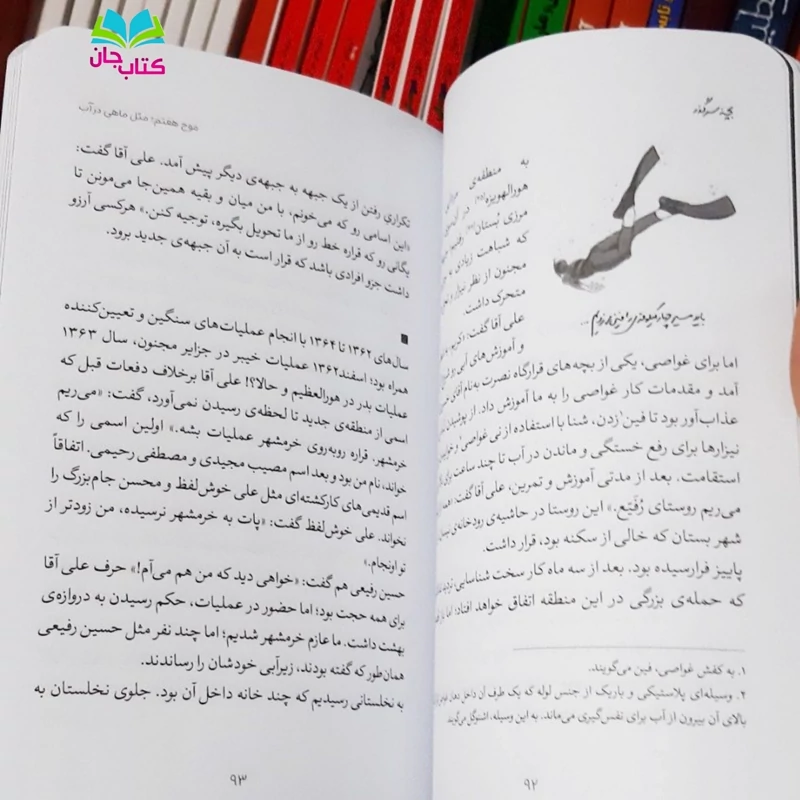 کتاب جان
به منطقه‌ی
هورالهویزه(۲۲) در
مرزی بُستان(۲۳) رفتیم
که شباهت زیادی به
مجنون از نظر نیزار و
متحرک داشت.
علی آقا گفت: «کریم
و آموزش‌های آبی رو
باید مسیر چهار کیلومتری را فین می‌زدیم ...
اما برای غواصی، یکی از بچه‌های قرارگاه نصرت به‌نام آقای
آمد و مقدمات کار غواصی را به ما آموزش داد. از پوشیدن
عذاب‌آور بود تا فین۱ زدن، شنا با استفاده از نی غواصی۲ و خوابیدن
نیزارها برای رفع خستگی و ماندن در آب تا چند ساعت برای
استقامت. بعد از مدتی آموزش و تمرین، علی آقا گفت:
می‌ریم روستای رُفَیّع.» این روستا در حاشیه‌ی رودخانه‌ی نیسان
شهر بستان که خالی از سکنه بود، قرار داشت.
پاییز فرارسیده بود. بعد از سه ماه کار سخت شناسایی،
که حمله‌ی بزرگی در این منطقه اتفاق خواهد افتاد؛ اما
۱. به کفش غواصی، فین می‌گویند.
۲. وسیله‌ای پلاستیکی و باریک از جنس لوله که یک طرف آن داخل دهان
بالای آن بیرون از آب برای نفس‌گیری می‌ماند. به این وسیله، اشنوگل می‌گویند.
۹۲
موج هفتم؛ مثل ماهی در آب
تکراریِ رفتن از یک جبهه به جبهه‌ی دیگر پیش آمد. علی آقا گفت:
«این اسامی رو که می‌خونم، با من میان و بقیه همین‌جا می‌مونن تا
یگانی رو که قراره خط رو از ما تحویل بگیره، توجیه کنن.» هرکسی آرزو
داشت جزو افرادی باشد که قرار است به آن جبهه‌ی جدید برود.
■
سال‌های ۱۳۶۲ تا ۱۳۶۴ با انجام عملیات‌های سنگین و تعیین‌کننده
همراه بود؛ اسفند۱۳۶۲ عملیات خیبر در جزایر مجنون، سال ۱۳۶۳
عملیات بدر در هورالعظیم و حالا؟! علی آقا برخلاف دفعات قبل که
اسمی از منطقه‌ی جدید تا لحظه‌ی رسیدن نمی‌آورد، گفت: «می‌ریم
خرمشهر. قراره روبه‌روی خرمشهر عملیات بشه.» اولین اسمی را که
خواند، نام من بود و بعد اسم مصیب مجیدی و مصطفی رحیمی. اتفاقاً
اسم قدیمی‌های کارکشته‌ای مثل علی خوش‌لفظ و محسن جام‌بزرگ را
نخواند. علی خوش‌لفظ گفت: «پات به خرمشهر نرسیده، من زودتر از
تو اونجام.»
حسین رفیعی هم گفت: «خواهی دید که من هم می‌آم!» حرف علی آقا
برای همه حجت بود؛ اما حضور در عملیات، حکم رسیدن به دروازه‌ی
بهشت داشت. ما عازم خرمشهر شدیم؛ اما چند نفر مثل حسین رفیعی
همان‌طور که گفته بودند، زیرآبی خودشان را رساندند.
به نخلستانی رسیدیم که چند خانه داخل آن بود. جلوی نخلستان به
۹۳